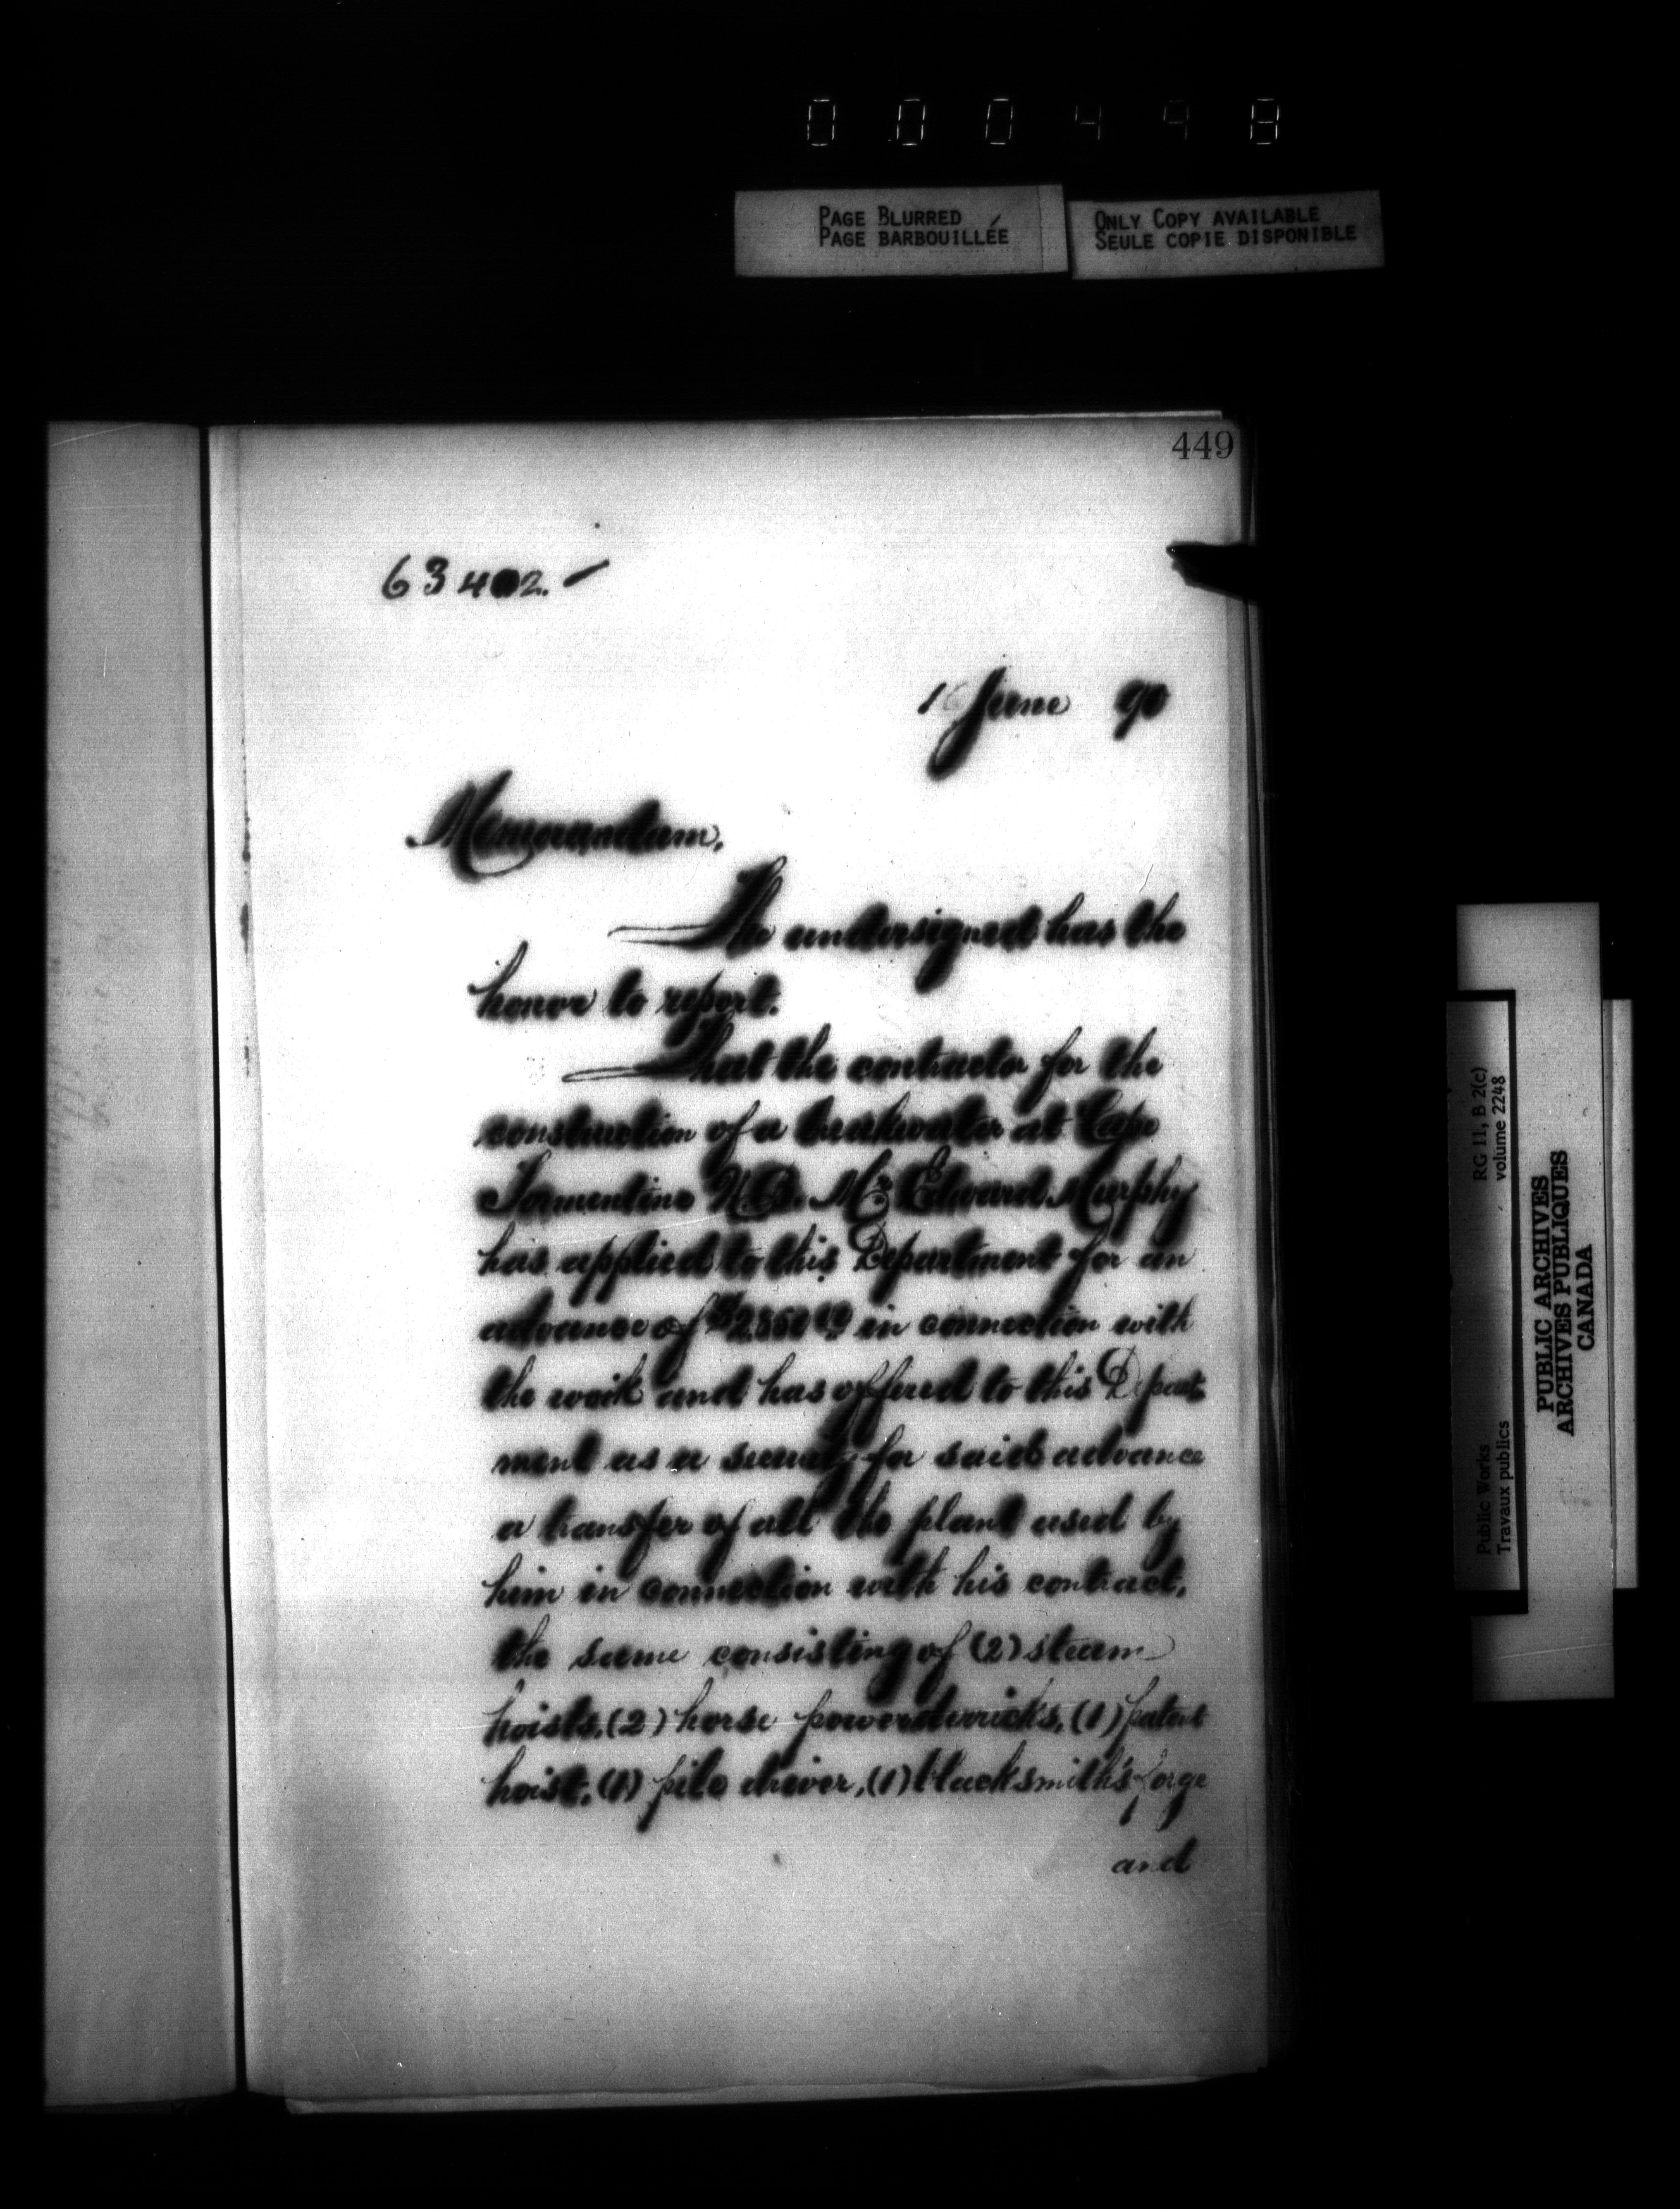 000498
PAGE BLURRED
PAGE BARBOUILLÉE
ONLY COPY AVAILABLE
SEULE COPIE DISPONIBLE
449
63402.
June 90
Memorandum.
The undersigned has the
honor to report.
That the contractor for the
construction of a breakwater at Cape
Tormentine N.B. Mr Edward Murphy
has applied to this Department for an
advance of in connection with
the work and has offered to this Depart
ment as a security for said advance
a transfer of all the plant used by
him in connection with his contract,
the same consisting of (2) steam
hoists, (2) horse power derricks, (1) patent
hoist, (1) pile driver, (1) blacksmith's forge
and
Public Works
Travaux publics
RG 11, B 2(c)
volume 2248
PUBLIC ARCHIVES
ARCHIVES PUBLIQUES
CANADA